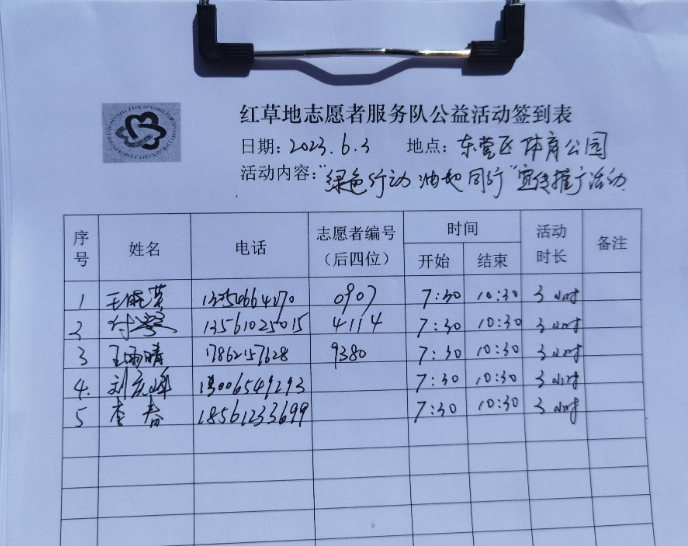 红草地志愿者服务队公益活动签到表
日期：2023.6.3 地点：东营区体育公园
活动内容："绿色行动 油地同行"宣传推广活动
序号 姓名 电话 志愿者编号（后四位） 时间 开始 结束 活动时长 备注
1 0907 7:30 10:30 3小时
2 13561025015 4114 7:30 10:30 3小时
3 17862157628 9380 7:30 10:30 3小时
4. 刘彦峰 7:30 10:30 3小时
5 李春 18561233699 7:30 10:30 3小时